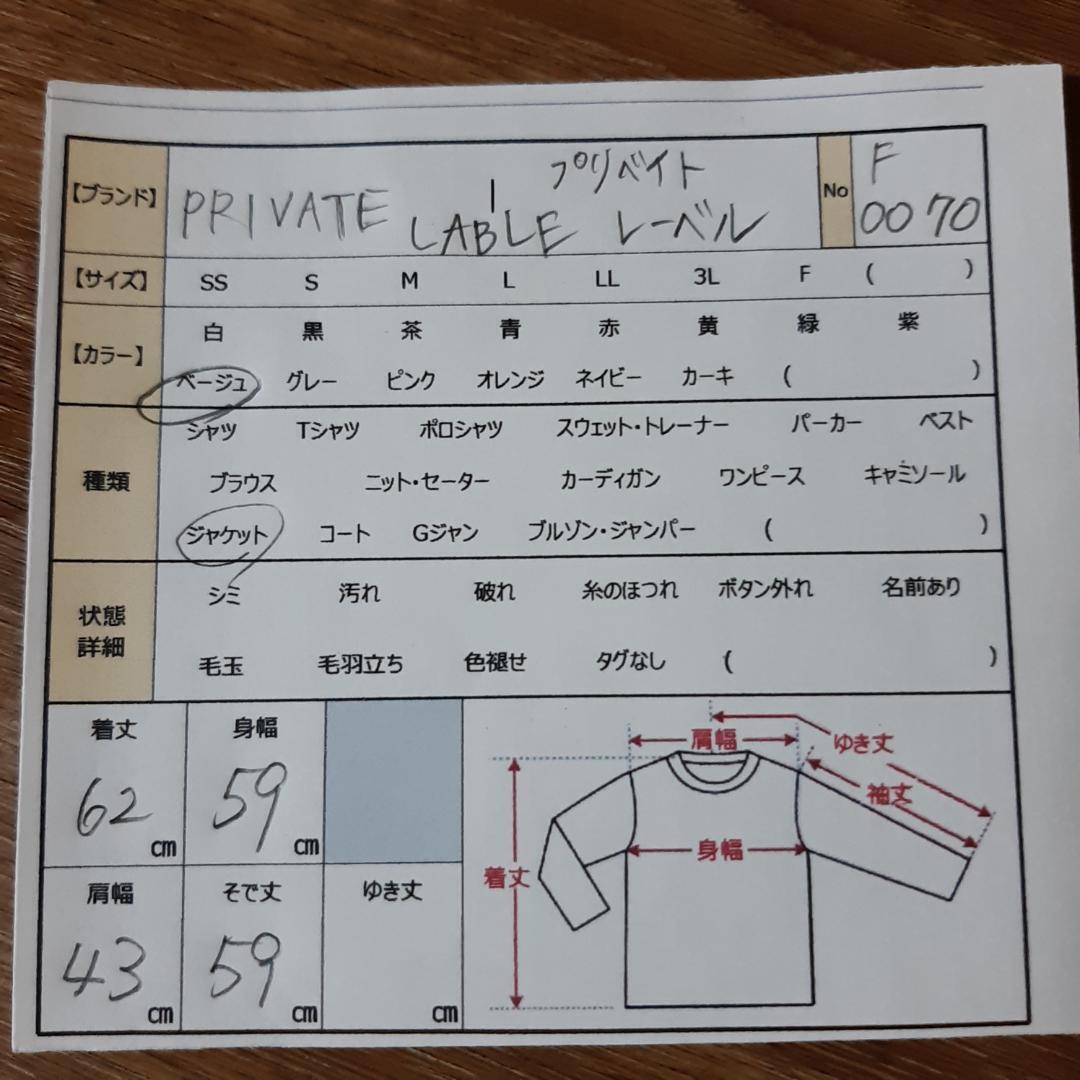 【ブランド】 PRIVATE LABLE プリベイト レーベル No F 0070
【サイズ】 SS S M L LL 3L F ( )
【カラー】 白 黒 茶 青 赤 黄 緑 紫
ベージュ グレー ピンク オレンジ ネイビー カーキ ( )
種類 シャツ Tシャツ ポロシャツ スウェット・トレーナー パーカー ベスト
ブラウス ニット・セーター カーディガン ワンピース キャミソール
ジャケット コート Gジャン ブルゾン・ジャンパー ( )
状態詳細 シミ 汚れ 破れ 糸のほつれ ボタン外れ 名前あり
毛玉 毛羽立ち 色褪せ タグなし ( )
着丈 身幅
62cm 59cm
肩幅 そで丈 ゆき丈
43cm 59cm cm
肩幅 ゆき丈
袖丈
身幅
着丈